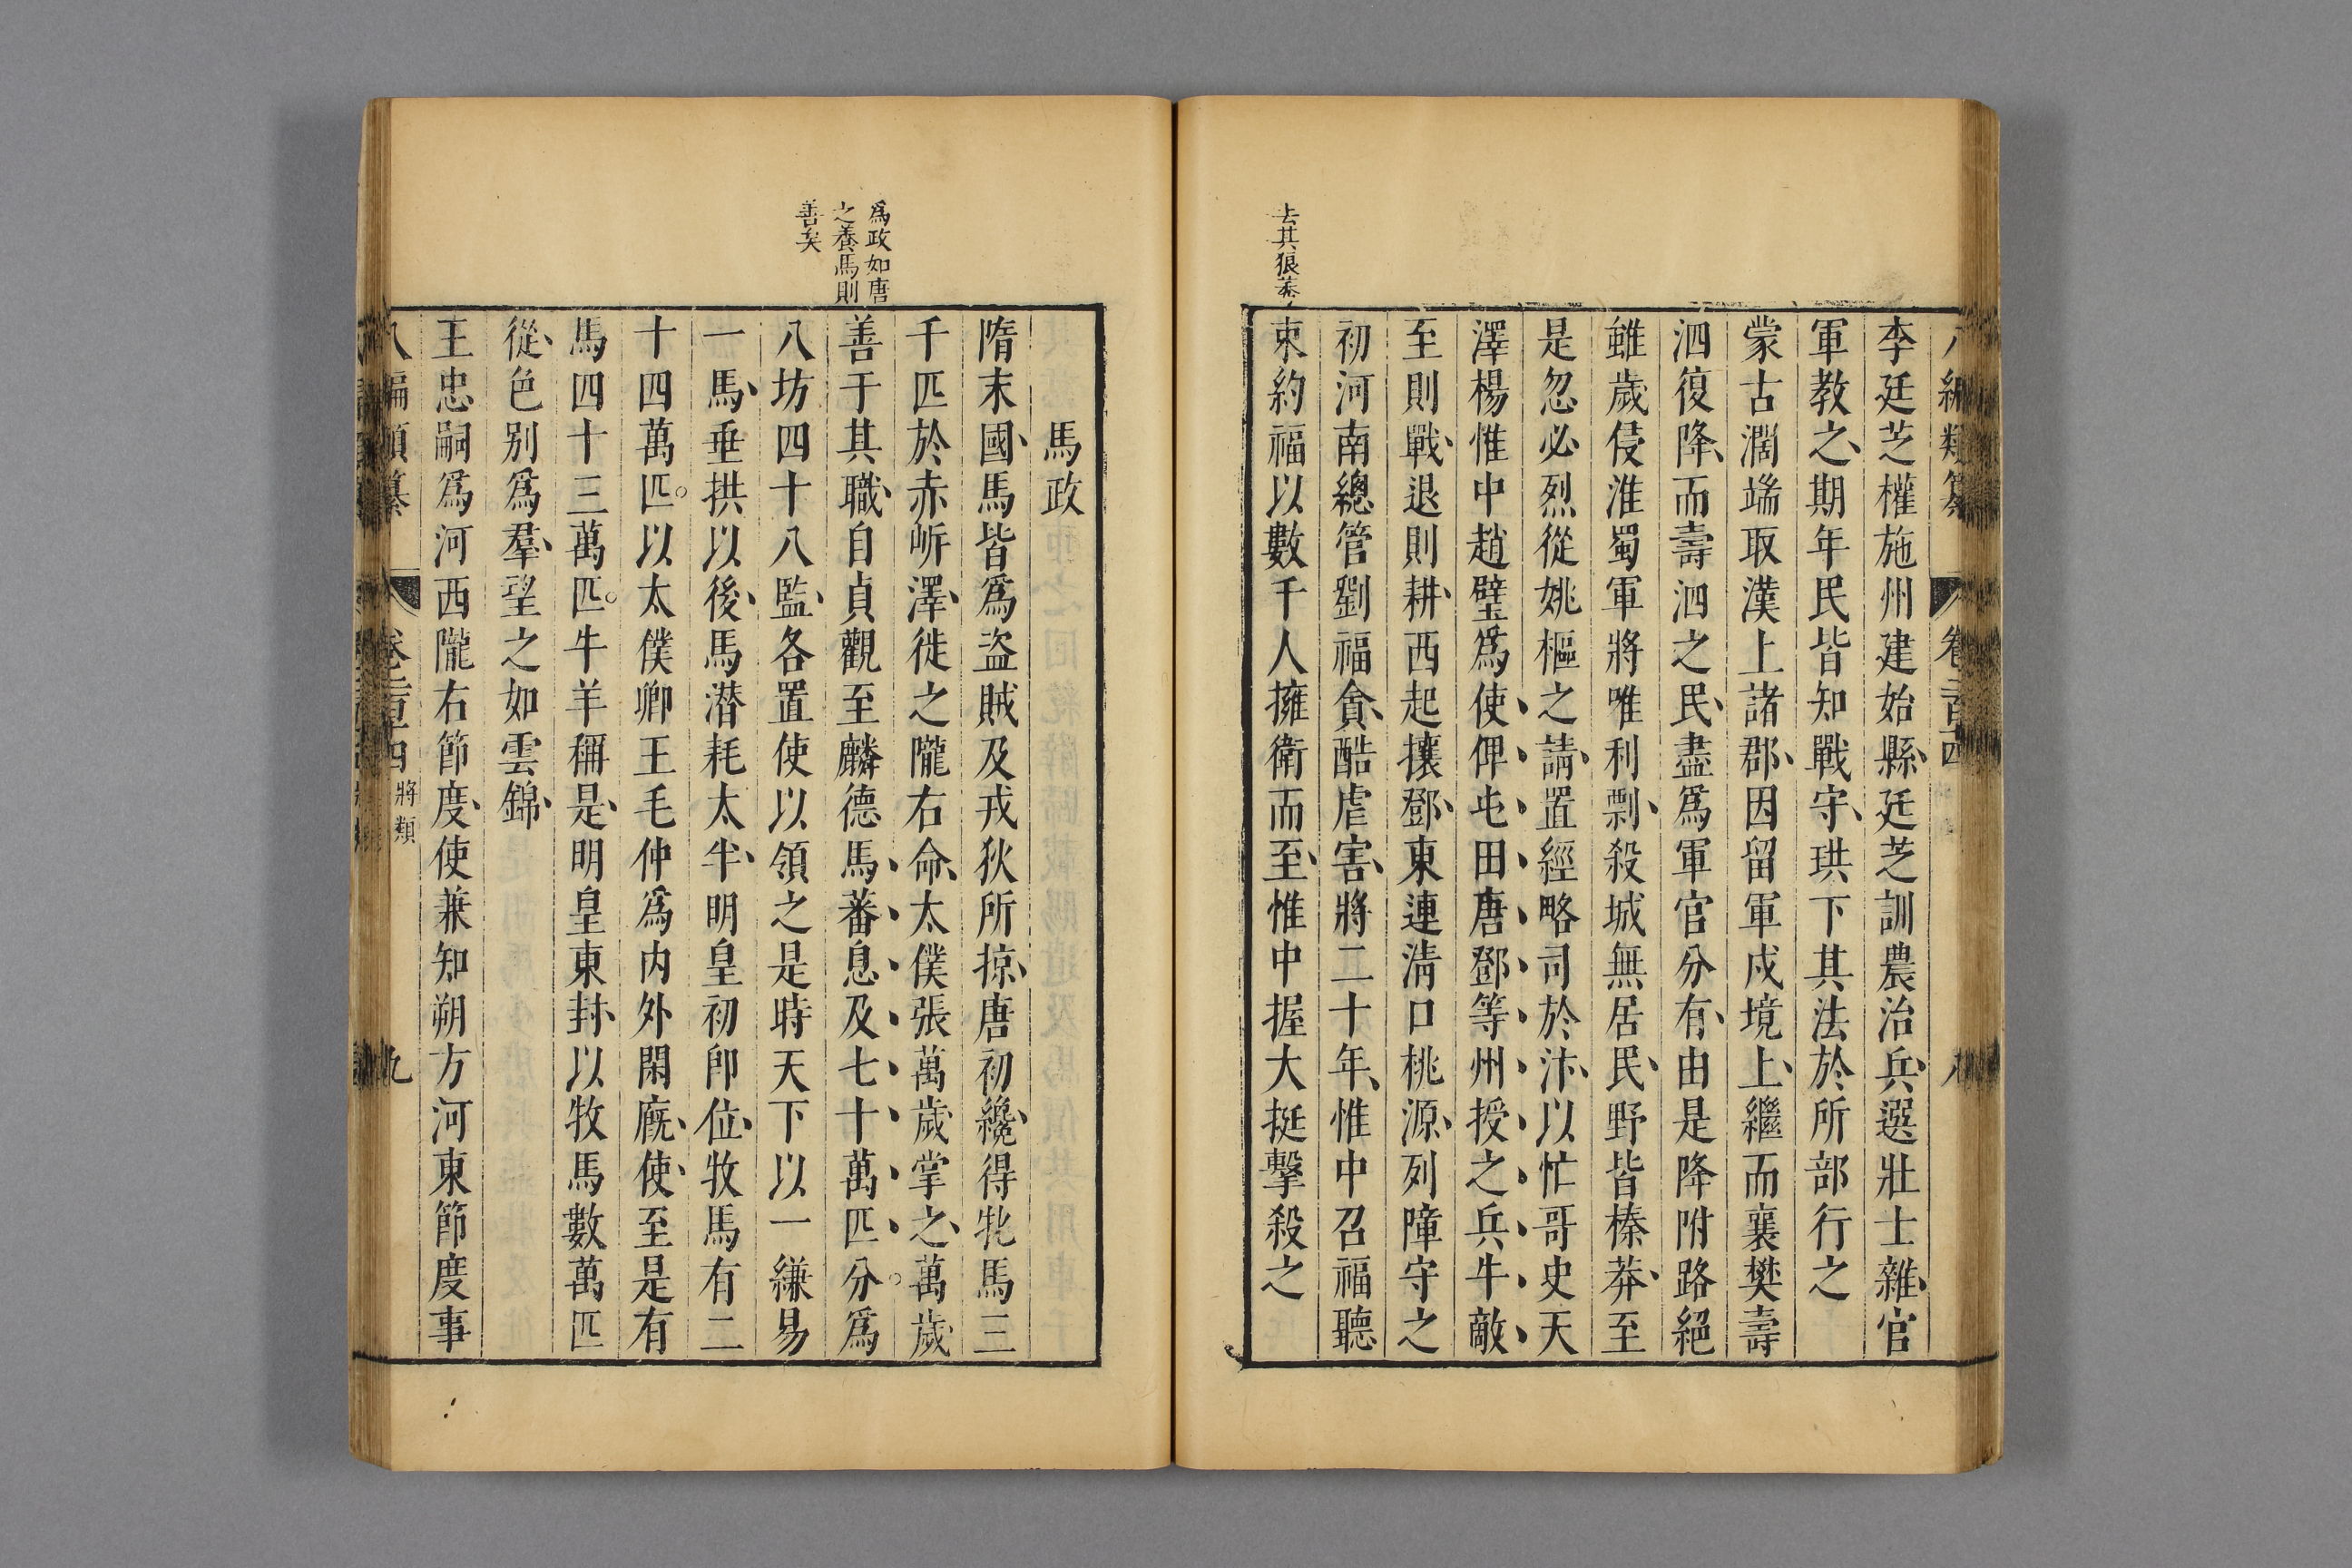 李廷芝權施州建始縣廷芝訓農治兵選壯士雜官
軍教之期年民皆知戰守珙下其法於所部行之
蒙古濶端取漢上諸郡因留軍戍境上繼而襄樊壽
泗復降而壽泗之民盡爲軍官分有由是降附路絕
雖歲侵淮蜀軍將唯利剽殺城無居民野皆榛莽至
是忽必烈從姚樞之請置經略司於汴以忙哥史天
澤楊惟中趙璧爲使俾屯田唐鄧等州授之兵牛敵
至則戰退則耕西起攘鄧東連淸口桃源列障守之
初河南總管劉福貪酷虐害將二十年惟中召福聽
束約福以數千人擁衛而至惟中握大挺擊殺之
去其狼莠
馬政
隋末國馬皆爲盜賊及戎狄所掠唐初纔得牝馬三
千匹於赤岍澤徙之隴右命太僕張萬歲掌之萬歲
善于其職自貞觀至麟德馬蕃息及七十萬匹分爲
八坊四十八監各置使以領之是時天下以一縑易
一馬垂拱以後馬潜耗太半明皇初卽位牧馬有二
十四萬匹以太僕卿王毛仲爲內外閑廐使至是有
馬四十三萬匹牛羊稱是明皇東封以牧馬數萬匹
從色別爲羣望之如雲錦
王忠嗣爲河西隴右節度使兼知朔方河東節度事
爲政如唐
之養馬則
善矣
八編類纂
卷二百四
將類
九